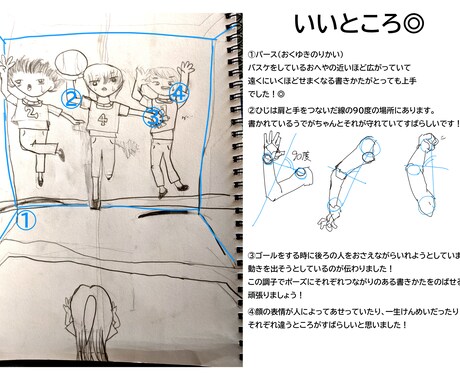 いいところ◎
①パース(おくゆきのりかい)
バスケをしているおへやの近いほど広がっていて
遠くにいくほどせまくなる書きかたがとっても上手
でした!◎
②ひじは肩と手をつないだ線の90度の場所にあります。
書かれているうでがちゃんとそれが守れていてすばらしいです!
90度
③ゴールをする時に後ろの人をおさえながらいれようとしていま
動きを出そうとしているのが伝わりました!
この調子でポーズにそれぞれつながりのある書きかたをのばせる
頑張りましょう!
④顔の表情が人によってあせっていたり、一生けんめいだったり
それぞれ違うところがすばらしいと思いました!
②
④
③
2
4
①